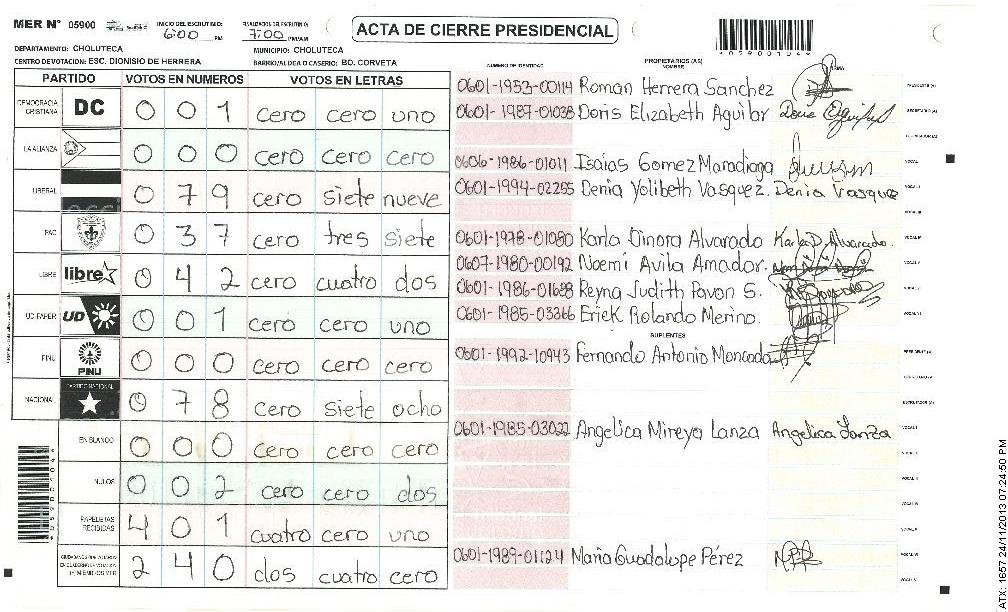 MER N° 05900
INICIO DEL ESCRUTINIO: 6:00 PM
FINALIZACION DEL ESCRUTINIO: 7:00 PM/AM
ACTA DE CIERRE PRESIDENCIAL
*059001044*
DEPARTAMENTO: CHOLUTECA MUNICIPIO: CHOLUTECA
CENTRO DE VOTACION: ESC. DIONISIO DE HERRERA BARRIO/ALDEA O CASERIO: BO. CORVETA
PARTIDO VOTOS EN NUMEROS VOTOS EN LETRAS
DEMOCRACIA CRISTIANA DC 0 0 1 cero cero uno
LA ALIANZA 0 0 0 cero cero cero
LIBERAL 0 7 9 cero siete nueve
PAC 0 3 7 cero tres siete
LIBRE libre 0 4 2 cero cuatro dos
UD-FAPER UD 0 0 1 cero cero uno
PINU PINU 0 0 0 cero cero cero
NACIONAL PARTIDO NACIONAL 0 7 8 cero siete ocho
EN BLANCO 0 0 0 cero cero cero
NULOS 0 0 2 cero cero dos
PAPELETAS RECIBIDAS 4 0 1 cuatro cero uno
2 4 0 dos cuatro cero
NUMERO DE IDENTIDAD PROPIETARIOS (AS) NOMBRE FIRMA
0601-1953-00114 Roman Herrera Sanchez
0601-1987-01038 Doris Elizabeth Aguilar Doris Aguilar
0606-1986-01011 Isaias Gomez Maradiaga
0601-1994-02255 Denia Yolibeth Vasquez. Denia Vasquez
0601-1978-01080 Karla Dinora Alvarado Karla D. Alvarado.
0607-1980-00192 Noemi Avila Amador.
0601-1986-01628 Reyna Judith Pavon S.
0601-1985-03366 Erick Rolando Merino.
SUPLENTES
0601-1992-10943 Fernando Antonio Moncada
0601-1985-03022 Angelica Mireya Lanza Angelica Lanza
0601-1989-01124 Maria Guadalupe Pérez
ATX: 1657 24/11/2013 07:24:50 PM